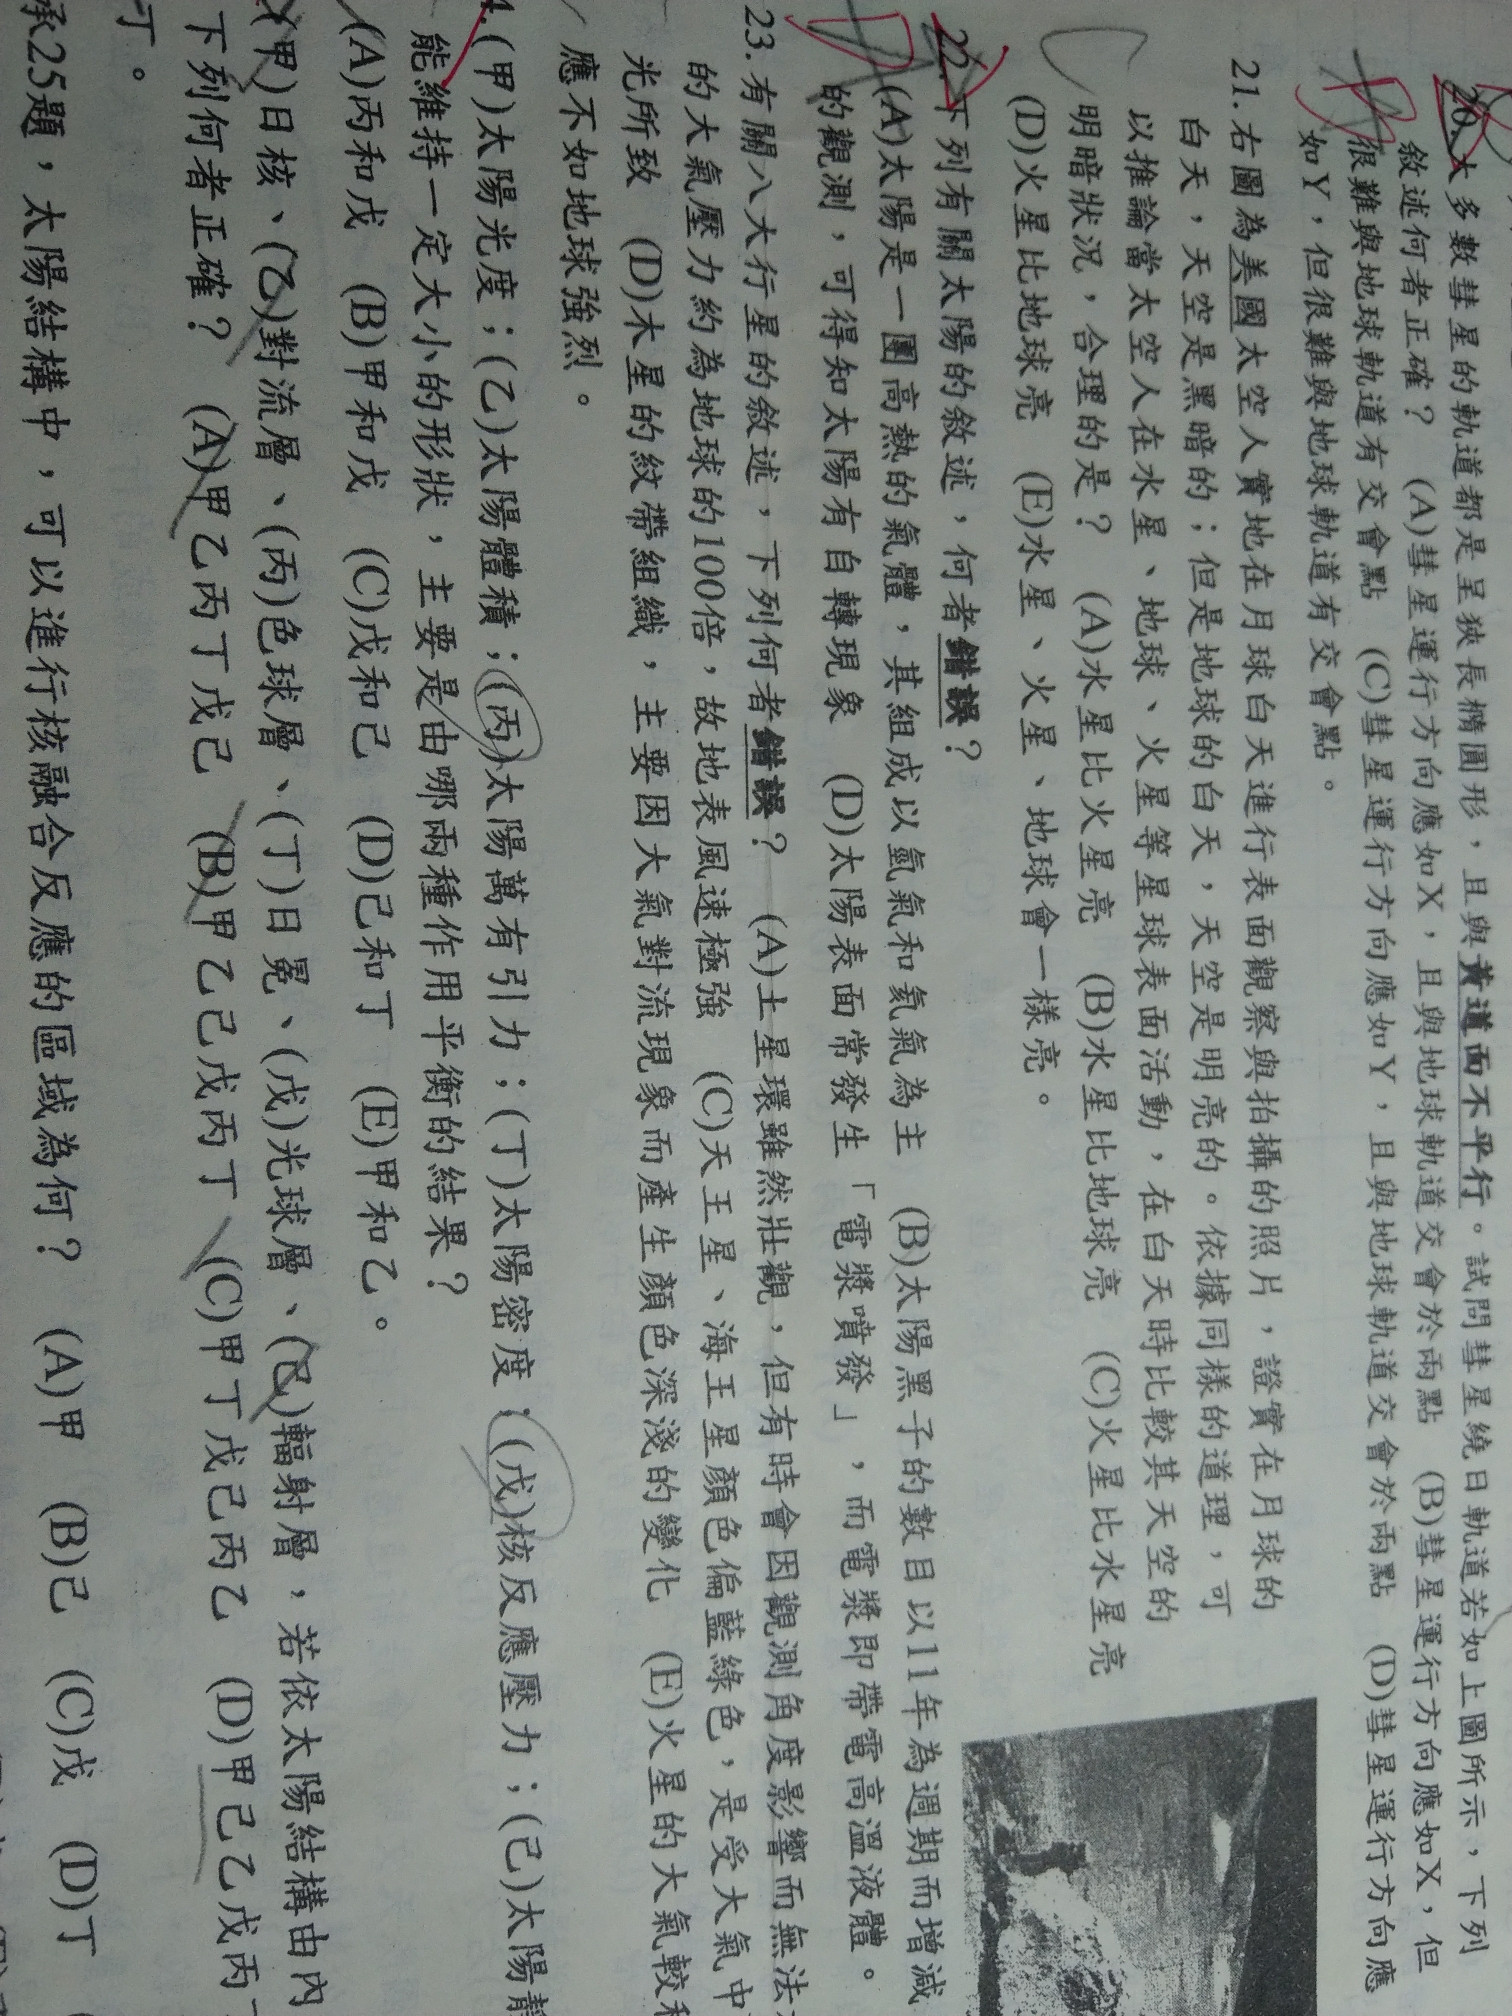 20.大多數彗星的軌道都是呈狹長橢圓形，且與黃道面不平行。試問彗星繞日軌道若如上圖所示，下列
敘述何者正確？ (A)彗星運行方向應如X，且與地球軌道交會於兩點 (B)彗星運行方向應如X，但
很難與地球軌道有交會點 (C)彗星運行方向應如Y，且與地球軌道交會於兩點 (D)彗星運行方向應
如Y，但很難與地球軌道有交會點。
21.右圖為美國太空人實地在月球白天進行表面觀察與拍攝的照片，證實在月球的
白天，天空是黑暗的；但是地球的白天，天空是明亮的。依據同樣的道理，可
以推論當太空人在水星、地球、火星等星球表面活動，在白天時比較其天空的
明暗狀況，合理的是？ (A)水星比火星亮 (B)水星比地球亮 (C)火星比水星亮
(D)火星比地球亮 (E)水星、火星、地球會一樣亮。
22.下列有關太陽的敘述，何者錯誤？
(A)太陽是一團高熱的氣體，其組成以氫氣和氦氣為主 (B)太陽黑子的數目以11年為週期而增減
的觀測，可得知太陽有自轉現象 (D)太陽表面常發生「電漿噴發」，而電漿即帶電高溫液體。
23.有關八大行星的敘述，下列何者錯誤？ (A)土星環雖然壯觀，但有時會因觀測角度影響而無法
的大氣壓力約為地球的100倍，故地表風速極強 (C)天王星、海王星顏色偏藍綠色，是受大氣中
光所致 (D)木星的紋帶組織，主要因大氣對流現象而產生顏色深淺的變化 (E)火星的大氣較稀
應不如地球強烈。
4.(甲)太陽光度；(乙)太陽體積；(丙)太陽萬有引力；(丁)太陽密度；(戊)核反應壓力；(己)太陽
能維持一定大小的形狀，主要是由哪兩種作用平衡的結果？
(A)丙和戊 (B)甲和戊 (C)戊和己 (D)己和丁 (E)甲和乙。
(甲)日核、(乙)對流層、(丙)色球層、(丁)日冕、(戊)光球層、(己)輻射層，若依太陽結構由內
下列何者正確？ (A)甲乙丙丁戊己 (B)甲乙己戊丙丁 (C)甲丁戊己丙乙 (D)甲己乙戊丙
丁。
承25題，太陽結構中，可以進行核融合反應的區域為何？ (A)甲 (B)己 (C)戊 (D)丁